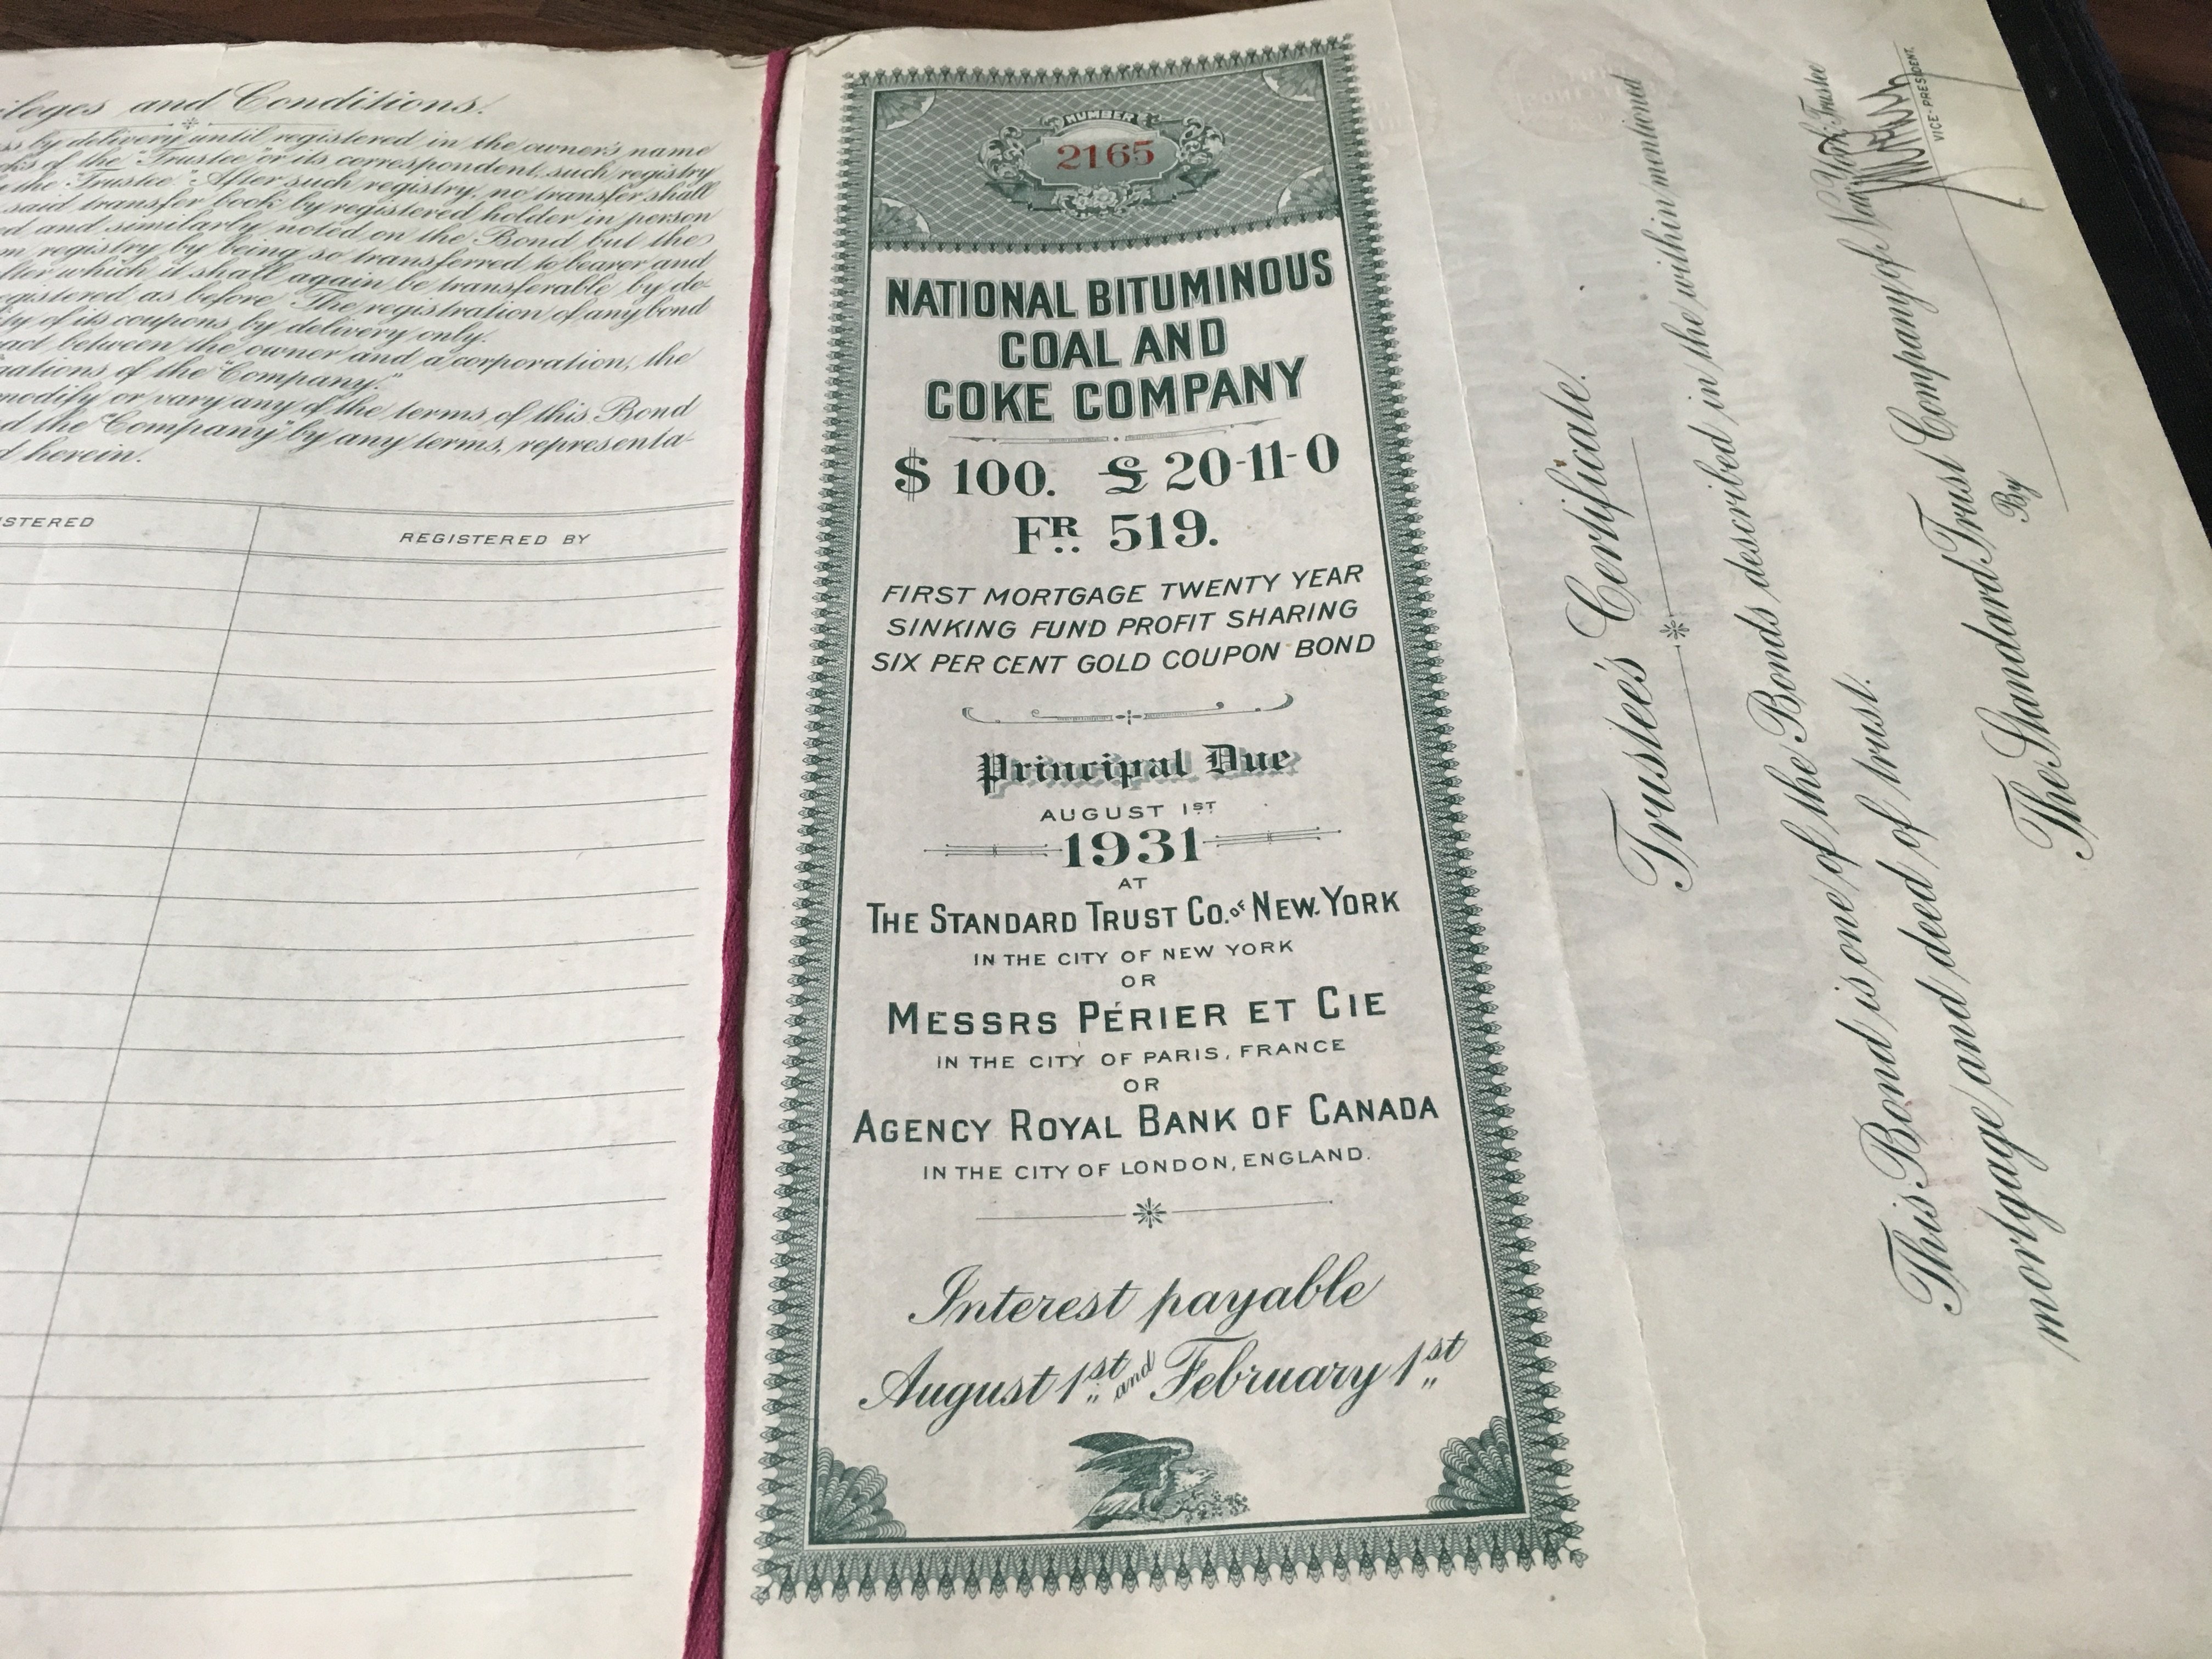 and Conditions.
by delivery until registered in the owner's name
of the "Trustee" or its correspondent, such registry
the "Trustee". After such registry, no transfer shall
said transfer book by registered holder in person
and similarly noted on the Bond but the
registry by being so transferred to bearer and
which it shall again be transferable by de-
registered as before. The registration of any bond
of its coupons by delivery only.
between the owner and a corporation, the
of the "Company."
modify or vary any of the terms of this Bond
the "Company" by any terms, representa-
herein.
REGISTERED BY
NUMBER
2165
NATIONAL BITUMINOUS
COAL AND
COKE COMPANY
$ 100. £ 20-11-0
FR. 519.
FIRST MORTGAGE TWENTY YEAR
SINKING FUND PROFIT SHARING
SIX PER CENT GOLD COUPON BOND
Principal Due
AUGUST 1ST
1931
AT
THE STANDARD TRUST CO. OF NEW YORK
IN THE CITY OF NEW YORK
OR
MESSRS PÉRIER ET CIE
IN THE CITY OF PARIS, FRANCE
OR
AGENCY ROYAL BANK OF CANADA
IN THE CITY OF LONDON, ENGLAND.
Interest payable
August 1st and February 1st
Trustee's Certificate.
This Bond is one of the Bonds described in the within mentioned
mortgage and deed of trust.
The Standard Trust Company of New York, Trustee
By
VICE-PRESIDENT.